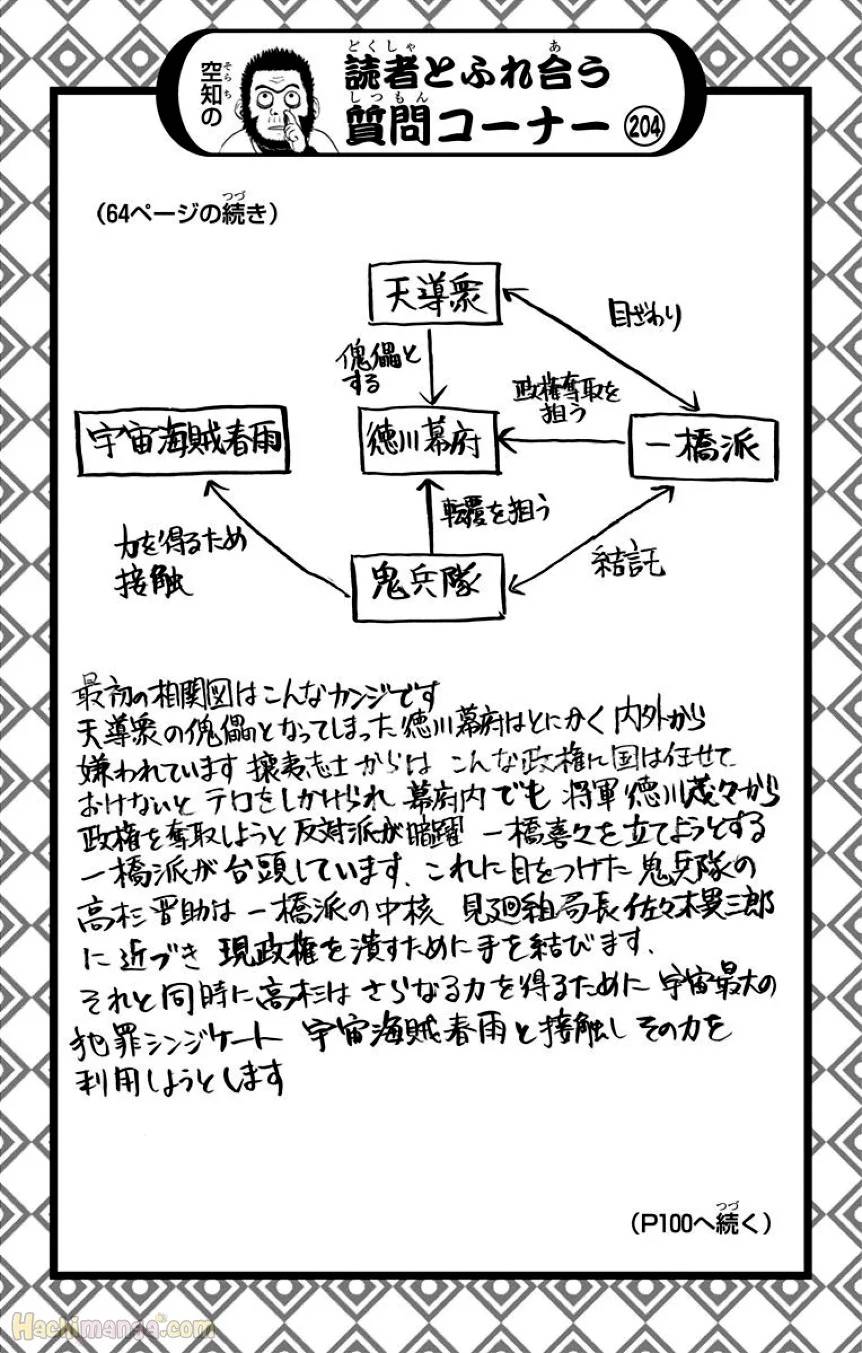 空知の
読者とふれ合う
質問コーナー 204
そらち
どくしゃ
あ
しつもん
(64ページの続き)
つづ
天導衆
目ざわり
傀儡と
する
政権奪取を
狙う
宇宙海賊春雨
徳川幕府
一橋派
転覆を狙う
力を得るため
接触
結託
鬼兵隊
最初の相関図はこんなカンジです
天導衆の傀儡となってしまった徳川幕府はとにかく内外から
嫌われています 攘夷志士からは こんな政権に国は任せて
おけないと テロをしかけられ 幕府内でも 将軍徳川茂々から
政権を奪取しようと反対派が暗躍 一橋喜々を立てようとする
一橋派が台頭しています、これに目をつけた鬼兵隊の
高杉晋助は一橋派の中核 見廻組局長佐々木異三郎
に近づき 現政権を潰すために手を結びます、
それと同時に高杉はさらなる力を得るために 宇宙最大の
犯罪シンジケート 宇宙海賊春雨と接触し その力を
利用しようとします
つづ
(P100へ続く)
Hachimanga.com